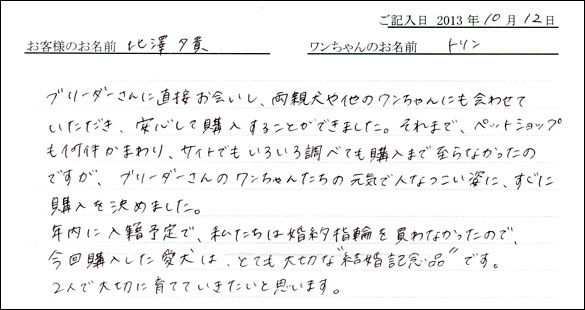 ご記入日 2013年10月12日
お客様のお名前 比澤夕貴 ワンちゃんのお名前 トリン
ブリーダーさんに直接お会いし、両親犬や他のワンちゃんにも会わせて
いただき、安心して購入することができました。それまで、ペットショップ
も何件かまわり、サイトでもいろいろ調べても購入まで至らなかったの
ですが、ブリーダーさんのワンちゃんたちの元気で人なつこい姿に、すぐに
購入を決めました。
年内に入籍予定で、私たちは婚約指輪を買わなかったので、
今回購入した愛犬は、とても大切な"結婚記念品"です。
2人で大切に育てていきたいと思います。